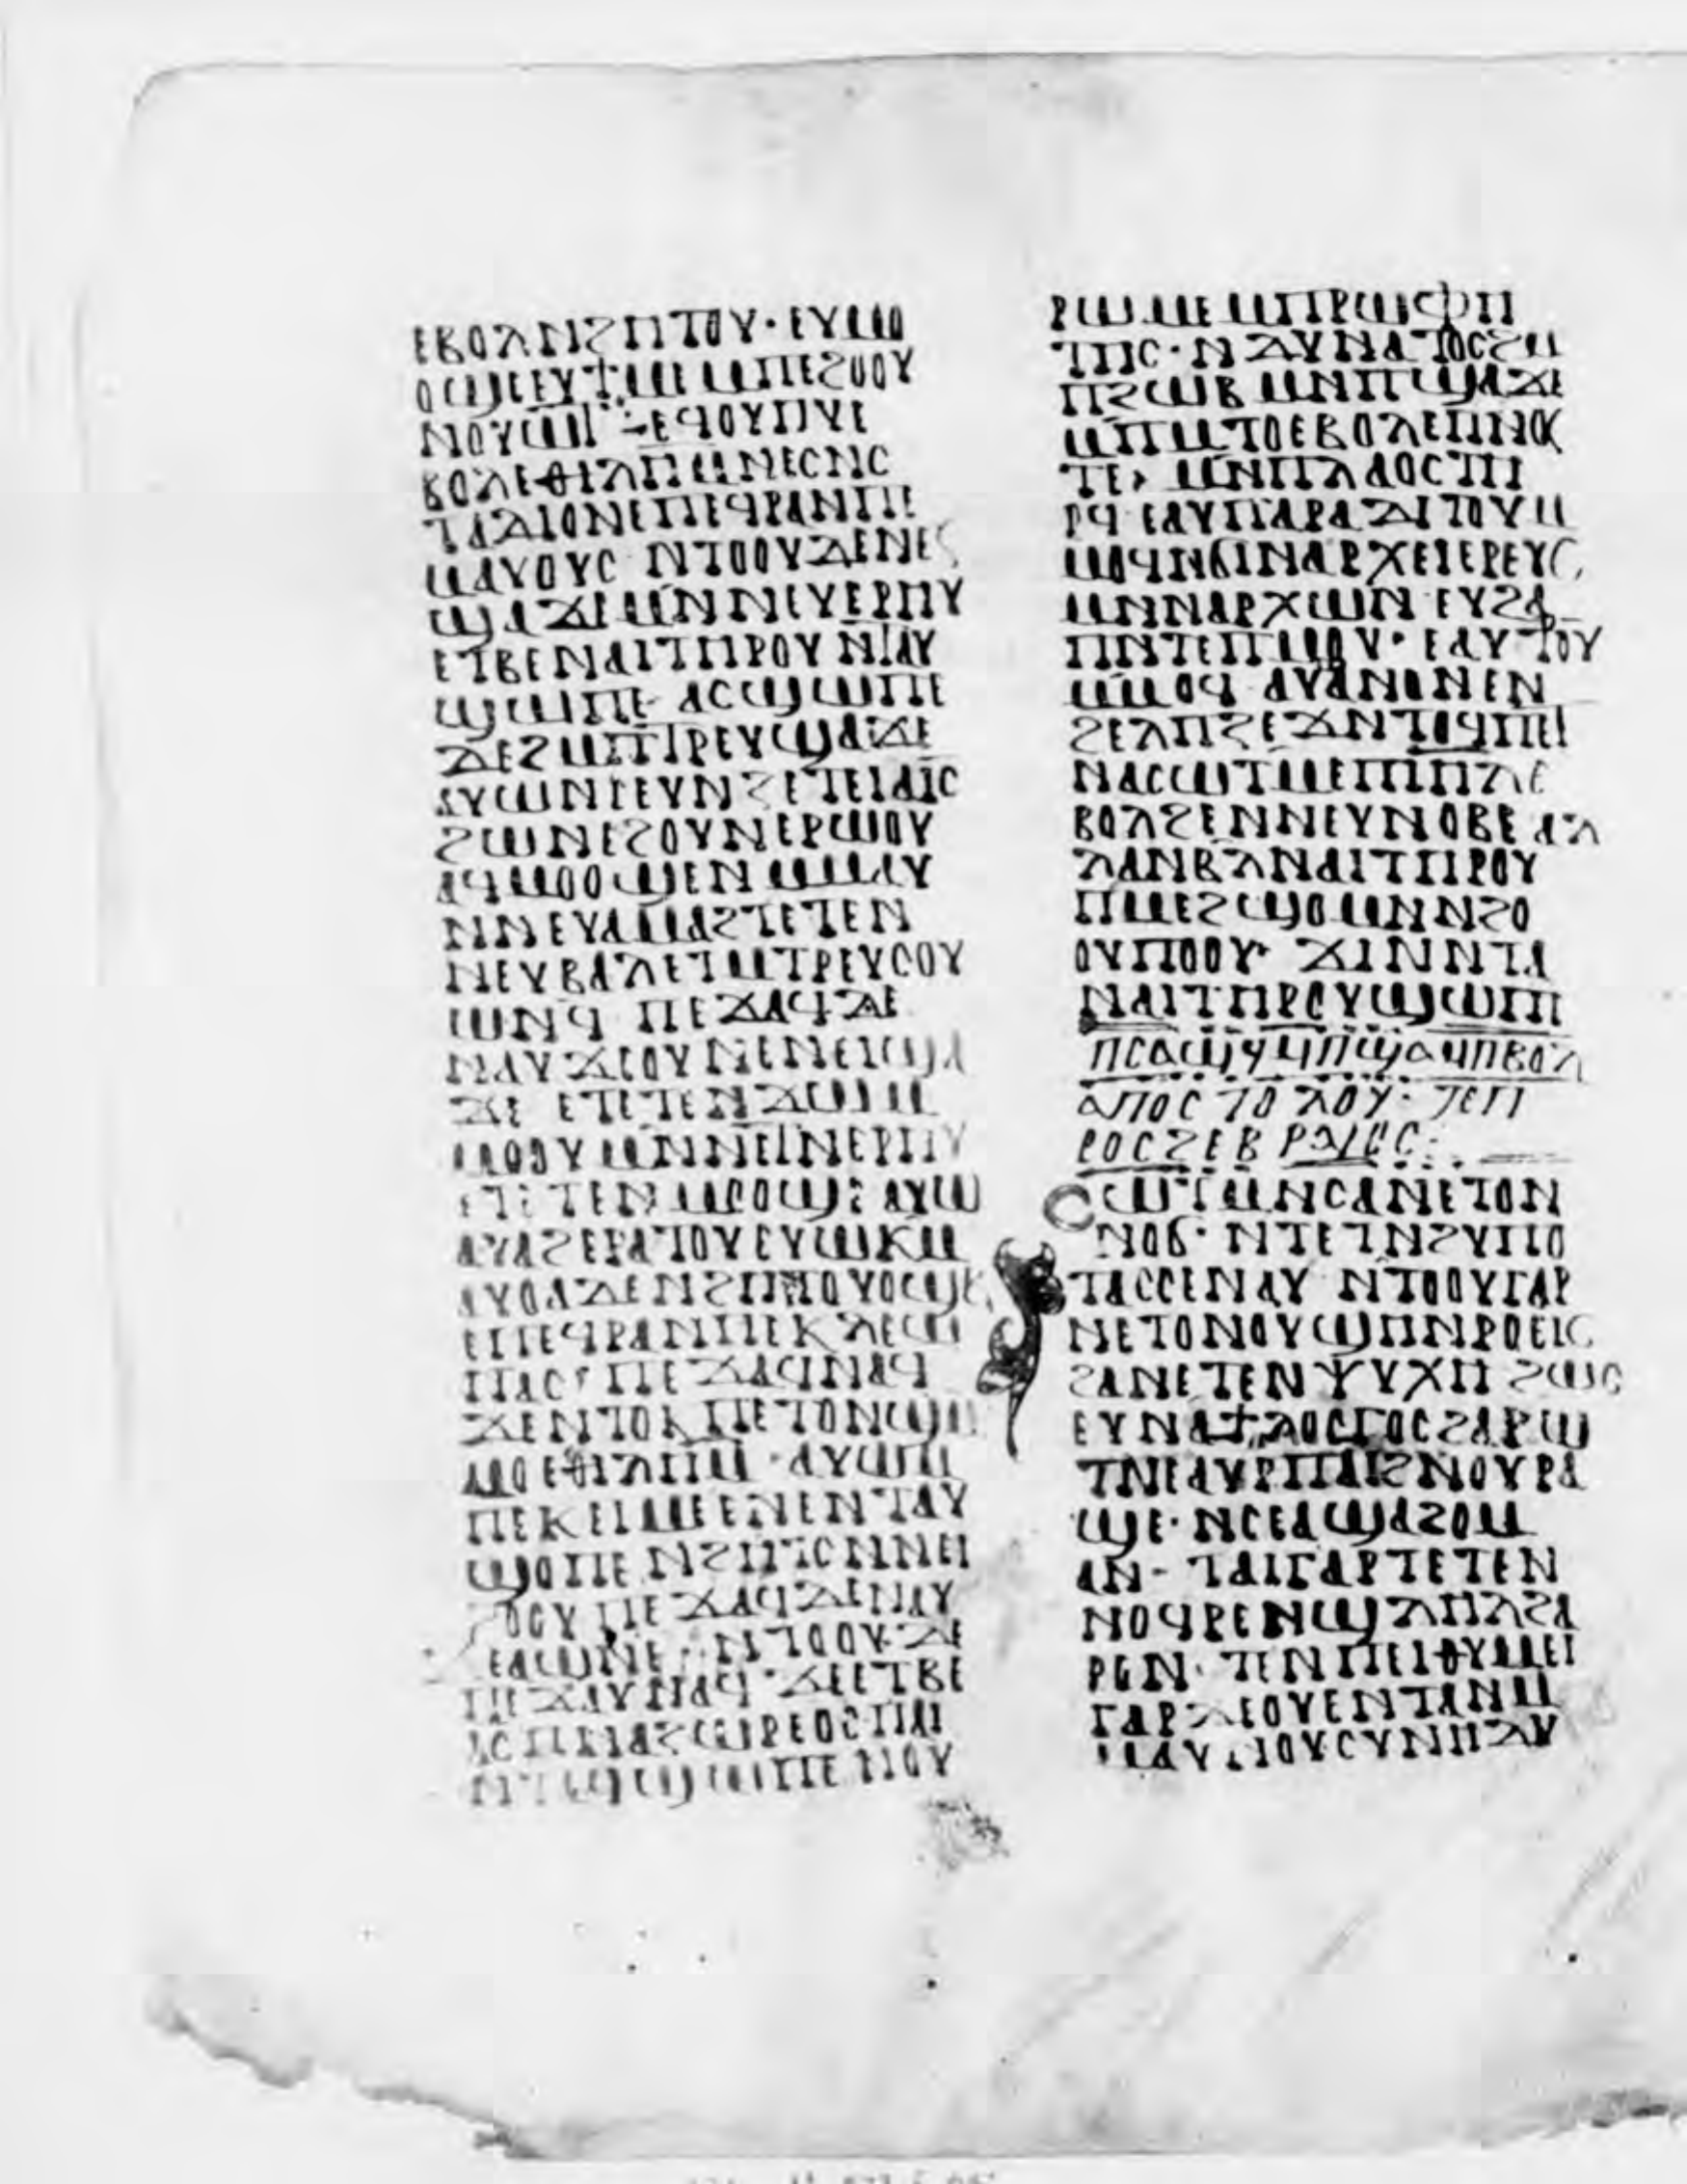 ⲉⲃⲟⲗⲛϩⲏⲧⲟⲩ· ⲉⲩⲙⲟ
ⲟϣⲉⲉⲩϯⲙⲉⲙⲡⲉϩⲟⲟⲩ
ⲛⲟⲩⲱⲧ ⲉϥⲟⲩⲏⲩⲉ
ⲃⲟⲗⲉⲑⲓⲗⲏⲙⲛⲉⲥⲛⲥ
ⲧⲁⲇⲓⲟⲛⲉⲡⲉϥⲣⲁⲛⲡⲉ
ⲙⲁⲩⲟⲩⲥ ⲛⲧⲟⲟⲩⲇⲉⲛⲉⲩ
ϣⲁϫⲉⲙⲛⲛⲉⲩⲉⲣⲏⲩ
ⲉⲧⲃⲉⲛⲁⲓⲧⲏⲣⲟⲩ ⲛⲧⲁⲩ
ϣⲱⲡⲉ ⲁⲥϣⲱⲡⲉ
ⲇⲉϩⲙⲡⲧⲣⲉⲩϣⲁϫⲉ
ⲁⲩⲱⲛⲥⲉⲩⲛϩⲉⲧⲉⲓⲁⲓⲥ
ϩⲱⲛⲉϩⲟⲩⲛⲉⲣⲱⲟⲩ
ⲁϥⲙⲟⲟϣⲉⲛⲙⲙⲁⲩ
ⲛⲛⲉⲩⲁⲙⲁϩⲧⲉⲧⲉⲛ
ⲛⲉⲩⲃⲁⲗⲉⲧⲙⲧⲣⲉⲩⲥⲟⲩ
ⲱⲛϥ ⲡⲉϫⲁϥⲇⲉ
ⲛⲁⲩϫⲉⲟⲩⲛⲉⲛⲉⲓϣⲁ
ϫⲉ ⲉⲧⲉⲧⲉⲛϫⲱⲙ
ⲙⲟⲟⲩ ⲙⲛⲛⲉⲧⲛⲉⲣⲏⲩ
ⲉⲧⲉⲧⲉⲛⲙⲟⲟϣⲉ ⲁⲩⲱ
ⲁⲩⲁϩⲉⲣⲁⲧⲟⲩⲉⲩⲱⲕⲙ
ⲁⲩⲟⲁⲇⲉⲛϩⲏⲧⲟⲩⲟⲩϣⲃ
ⲉⲡⲉϥⲣⲁⲛⲡⲉⲕⲗⲉⲱ
ⲡⲁⲥ ⲡⲉϫⲁϥⲛⲁϥ
ϫⲉⲛⲧⲟⲕⲡⲉⲧⲟⲛϣⲙ
ⲙⲟⲉⲑⲓⲗⲏⲙ· ⲁⲩⲱⲙ
ⲡⲉⲕⲉⲓⲙⲉⲉⲛⲉⲛⲧⲁⲩ
ϣⲟⲡⲉ ⲛϩⲏⲧⲥⲛⲛⲉⲓ
ϩⲟⲟⲩ ⲡⲉϫⲁϥⲇⲉⲛⲁⲩ
ϫⲉⲁϣⲛⲉ ⲛⲧⲟⲟⲩ ⲇⲉ
ⲡⲉϫⲁⲩⲛⲁϥ· ϫⲉⲉⲧⲃⲉ
ⲓⲥ ⲡⲛⲁⲍⲱⲣⲉⲟⲥ ⲡⲁⲓ
ⲛⲧⲁϥϣⲱⲡⲉ ⲛⲟⲩ
ⲣⲱⲙⲉ ⲙⲡⲣⲱⲫⲏ
ⲧⲏⲥ· ⲛⲇⲩⲛⲁⲧⲟⲥϩⲙ
ⲡϩⲱⲃ ⲙⲛⲡϣⲁϫⲉ
ⲙⲡⲙⲧⲟⲉⲃⲟⲗⲉⲡⲛⲟⲩ
ⲧⲉ› ⲙⲛⲡⲗⲁⲟⲥⲧⲏ
ⲣϥ ⲉⲁⲩⲡⲁⲣⲁⲇⲓⲧⲟⲩⲙ
ⲙⲟϥⲛϭⲓⲛⲁⲣⲭⲉⲓⲉⲣⲉⲩⲥ
ⲙⲛⲛⲁⲣⲭⲱⲛ ⲉⲩϩⲁ
ⲡⲛⲧⲉⲡⲙⲟⲩ· ⲉⲁⲩⲥⳁⲟⲩ
ⲙⲙⲟϥ ⲁⲩⲁⲛⲟⲛⲉⲛ
ϩⲉⲗⲡⲓϩⲉϫⲛⲧⲟϥⲡⲉⲧ
ⲛⲁⲥⲱⲧⲙⲉⲡⲓⲏⲗⲉ
ⲃⲟⲗϩⲉⲛⲛⲉⲩⲛⲟⲃⲉ ⲁⲗ
ⲗⲁⲛⲃⲗⲛⲁⲓⲧⲏⲣⲟⲩ
ⲡⲙⲉϩϣⲟⲙⲛⲛϩⲟ
ⲟⲩⲡⲟⲟⲩ· ϫⲓⲛⲛⲧⲁ
ⲛⲁⲓⲧⲏⲣⲟⲩϣⲱⲡⲓ
ⲡⲥⲁϣϥⲙⲡϣⲁⲙⲡⲃⲟⲗ
ⲁⲡⲟⲥⲧⲟⲗⲟⲩ· ⲧⲉⲡ
ⲣⲟⲥϩⲉⲃⲣⲁⲓⲟⲥ
ⲥⲱⲧⲙⲛⲥⲁⲛⲉⲧⲟⲛ
ⲛⲟϭ· ⲛⲧⲉⲧⲛϩⲩⲡⲟ
ⲧⲁⲥⲥⲉⲛⲁⲩ ⲛⲧⲟⲟⲩⲅⲁⲣ
ⲛⲉⲧⲟⲛⲟⲩϣⲏⲛⲣⲟⲉⲓⲥ
ϩⲁⲛⲉⲧⲉⲛⲯⲩⲭⲏ ϩⲱⲥ
ⲉⲩⲛⲁϯⲗⲟⲅⲟⲥϩⲁⲣⲱ
ⲧⲛⲉⲁⲩⲣⲡⲁⲓϩⲛⲟⲩⲣⲁ
ϣⲉ· ⲛⲥⲉⲁϣⲁϩⲟⲙ
ⲁⲛ- ⲧⲁⲓⲅⲁⲣⲧⲉⲧⲉⲛ
ⲛⲟϥⲣⲉⲛϣⲗⲏⲗϩⲁ
ⲣⲟⲛ· ⲧⲉⲛⲡⲉⲓⲑⲩⲙⲉⲓ
ⲅⲁⲣϫⲉⲟⲩⲉⲛⲧⲁⲛⲙ
ⲙⲁⲩⲛⲟⲩⲥⲩⲛⲏⲇⲩ